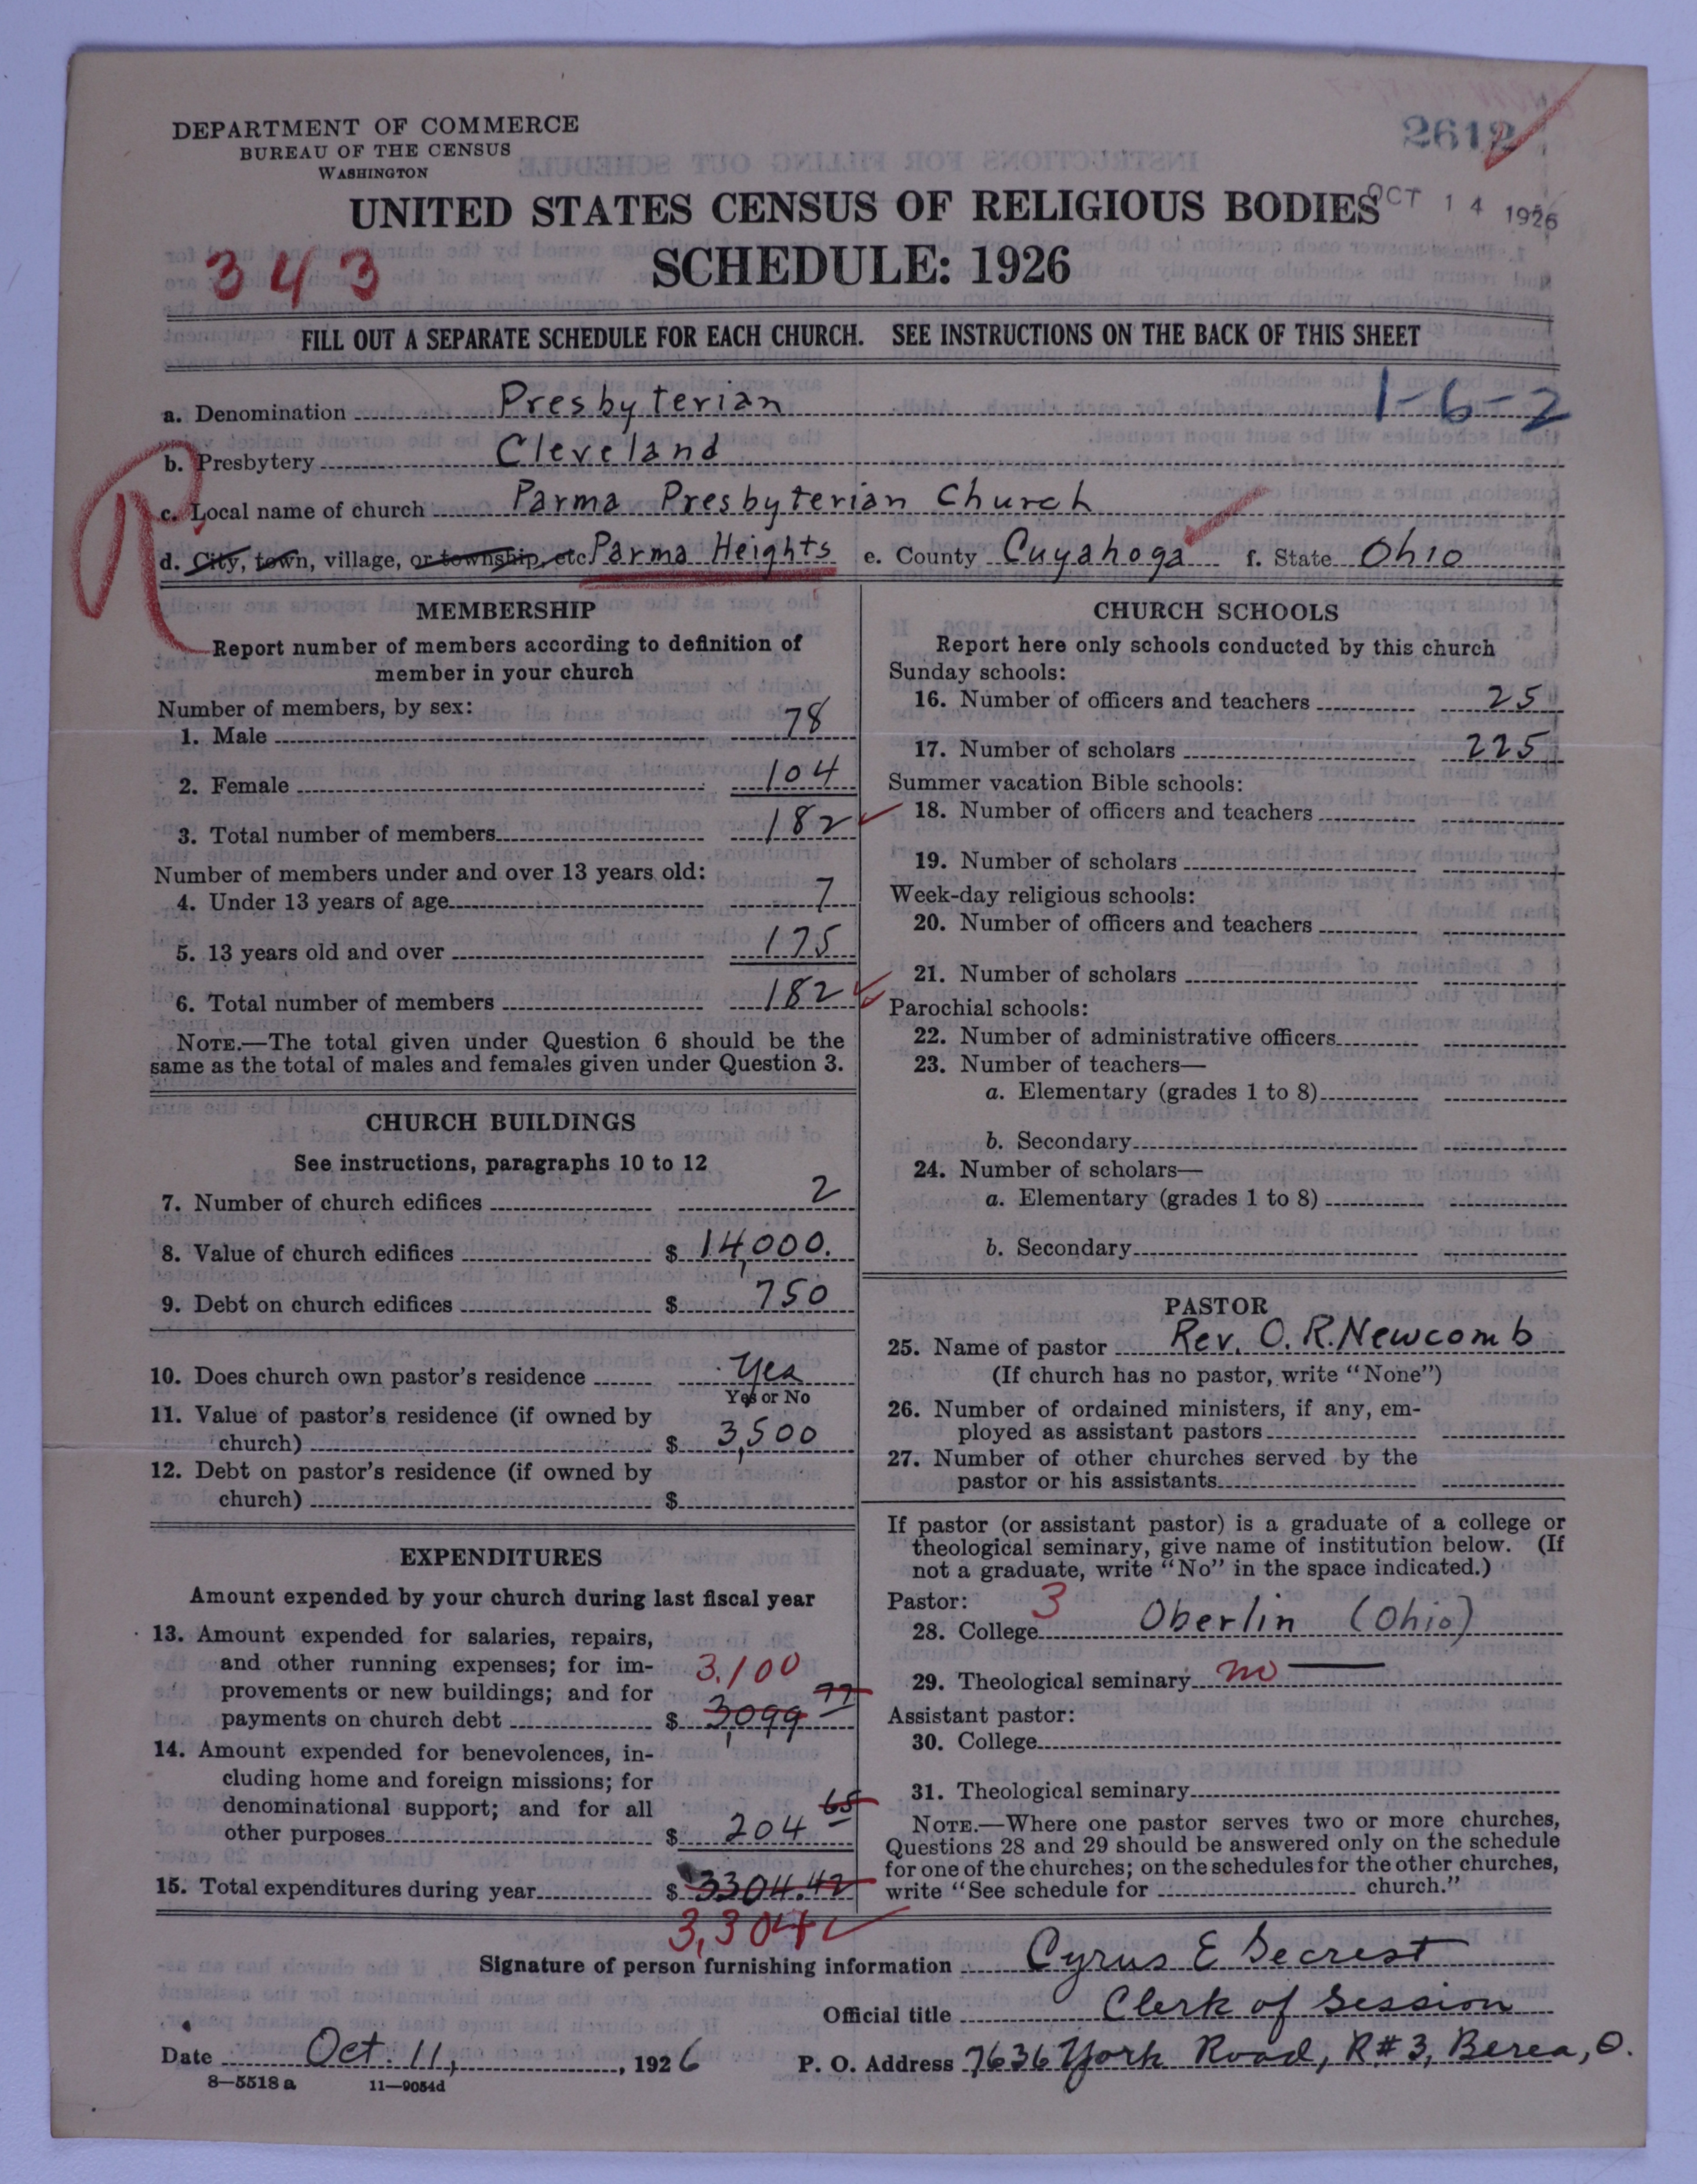 DEPARTMENT OF COMMERCE
BUREAU OF THE CENSUS
WASHINGTON
2612
UNITED STATES CENSUS OF RELIGIOUS BODIES
OCT 14 1926
SCHEDULE: 1926
343
FILL OUT A SEPARATE SCHEDULE FOR EACH CHURCH. SEE INSTRUCTIONS ON THE BACK OF THIS SHEET
a. Denomination Presbyterian 1-6-2
b. Presbytery Cleveland
c. Local name of church Parma Presbyterian Church
d. City, town, village, or township, etc. Parma Heights e. County Cuyahoga f. State Ohio
R
MEMBERSHIP
Report number of members according to definition of
member in your church
Number of members, by sex:
1. Male 78
2. Female 104
3. Total number of members 182
Number of members under and over 13 years old:
4. Under 13 years of age 7
5. 13 years old and over 175
6. Total number of members 182
NOTE.—The total given under Question 6 should be the
same as the total of males and females given under Question 3.
CHURCH BUILDINGS
See instructions, paragraphs 10 to 12
7. Number of church edifices 2
8. Value of church edifices $ 14,000.
9. Debt on church edifices $ 750
10. Does church own pastor's residence Yes
Yes or No
11. Value of pastor's residence (if owned by
church) $ 3,500
12. Debt on pastor's residence (if owned by
church) $
EXPENDITURES
Amount expended by your church during last fiscal year
13. Amount expended for salaries, repairs,
and other running expenses; for im- 3,100
provements or new buildings; and for 77
payments on church debt $ 3,099
14. Amount expended for benevolences, in-
cluding home and foreign missions; for
denominational support; and for all 65
other purposes $ 204
15. Total expenditures during year $ 3304.42
3,304
CHURCH SCHOOLS
Report here only schools conducted by this church
Sunday schools:
16. Number of officers and teachers 25
17. Number of scholars 225
Summer vacation Bible schools:
18. Number of officers and teachers
19. Number of scholars
Week-day religious schools:
20. Number of officers and teachers
21. Number of scholars
Parochial schools:
22. Number of administrative officers
23. Number of teachers—
a. Elementary (grades 1 to 8)
b. Secondary
24. Number of scholars—
a. Elementary (grades 1 to 8)
b. Secondary
PASTOR
25. Name of pastor Rev. O. R. Newcomb
(If church has no pastor, write "None")
26. Number of ordained ministers, if any, em-
ployed as assistant pastors
27. Number of other churches served by the
pastor or his assistants
If pastor (or assistant pastor) is a graduate of a college or
theological seminary, give name of institution below. (If
not a graduate, write "No" in the space indicated.)
Pastor: 3
28. College Oberlin (Ohio)
29. Theological seminary no
Assistant pastor:
30. College
31. Theological seminary
NOTE.—Where one pastor serves two or more churches,
Questions 28 and 29 should be answered only on the schedule
for one of the churches; on the schedules for the other churches,
write "See schedule for church."
Signature of person furnishing information Cyrus E Secrest
Official title Clerk of Session
Date Oct. 11, 1926 P. O. Address 7636 York Road, R#3, Berea, O.
8—5518 a 11—9054d